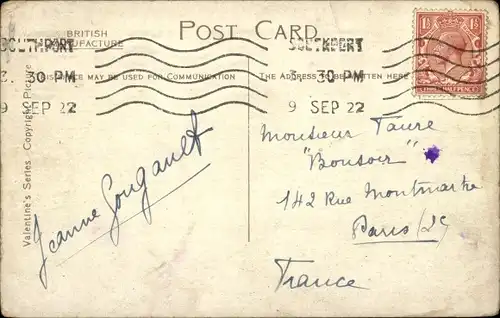 POST CARD
BRITISH
MANUFACTURE
SOUTHPORT
3. 30 PM
9 SEP 22
SOUTHPORT
3. 30 PM
9 SEP 22
THIS SPACE MAY BE USED FOR COMMUNICATION
THE ADDRESS TO BE WRITTEN HERE
Valentine's Series Copyright Picture
Jeanne Gougault
Monsieur Faure
"Bonsoir"
142 Rue Montmartre
Paris /2e
France